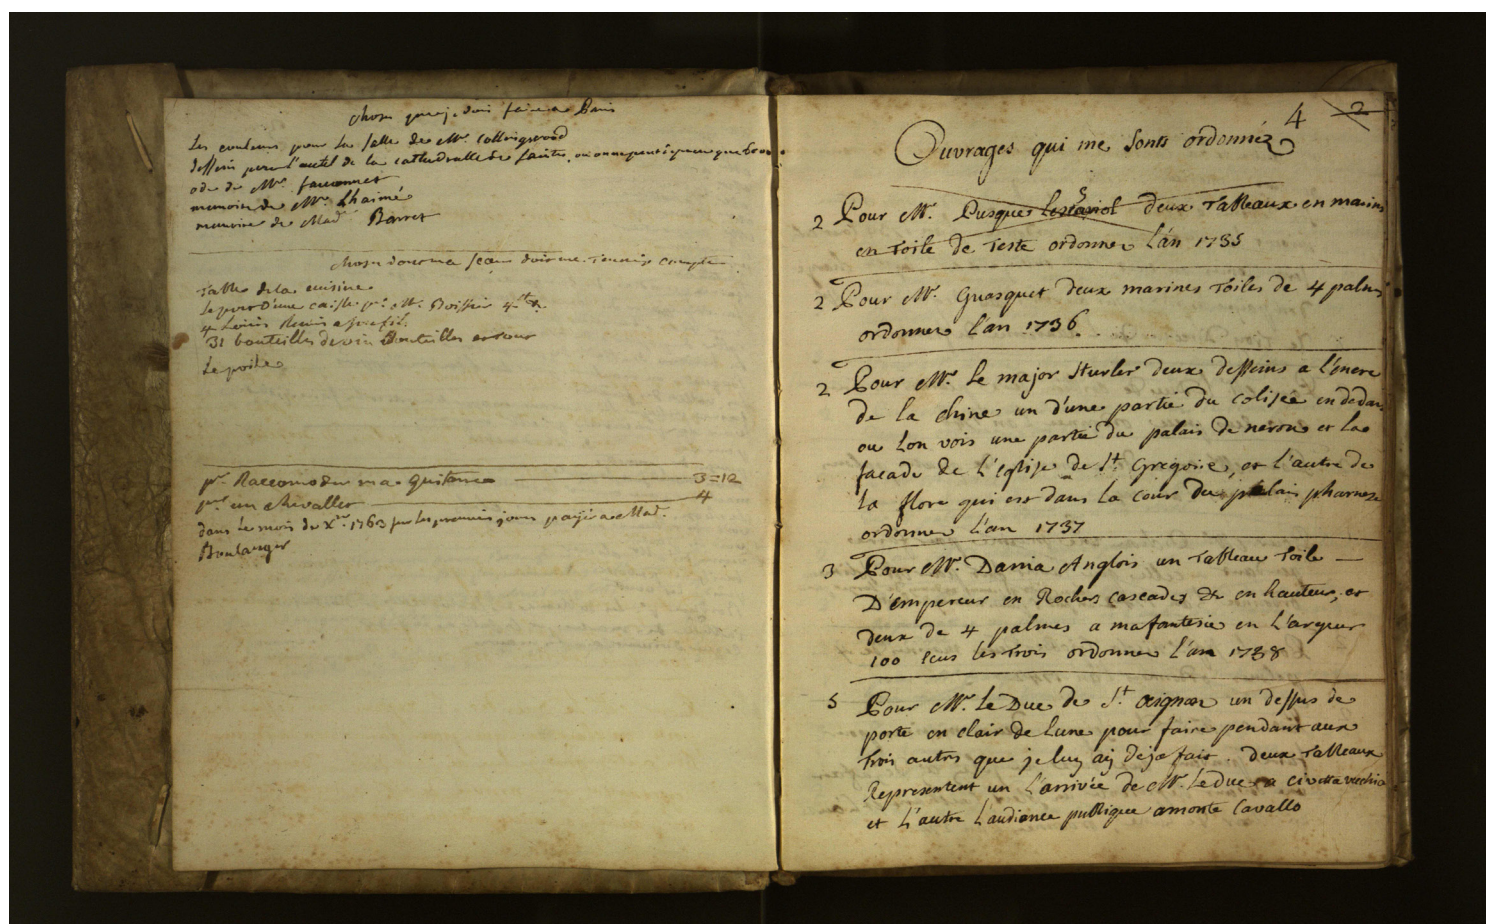 chose que je dois faire a Paris
Les couleurs pour la salle de Mr. Collingwood
dessein pour l'autel de la cathedralle de
ode de Mr.
memoire de Mr. Lhaimé
memoire de Mad. Barret
chose dont ma
Table de la cuisine
Le port d'une caisse pr. Mr. Boissier 4
4 Louis
31 bouteilles de vin Bouteilles
Le poile
pr. Raccomoder ma quitance 3=12
pr. un chevallet 4
dans Le mois de Xre. 1763 les premiers jours payé a Mad.
Boulanger
4 2
Ouvrages qui me sonts ordonnéz
2 Pour Mr. deux Tableaux en marine
en toile de Teste ordonnee L'an 1735
2 Pour Mr. Guasquet deux marines Toiles de 4 palmes
ordonnee L'an 1736.
2 Pour Mr. Le major Sturler deux desseins a l'encre
de la chine un d'une partie du colisée en dedans
ou Lon vois une partie du palais de neron et la
facade de L'eglise de St. Gregoire, et l'autre de
la flore qui est dans la cour du palais pharnese
ordonnee L'an 1737
3 Pour Mr. Dania Anglois un Tableau Toile —
D'empereur en Rochers cascades &c en hauteur, et
deux de 4 palmes a ma fantesie en L'argeur
100 Ecus les Trois ordonnee L'an 1738
5 Pour Mr. Le Duc de St. Aignan un dessus de
porte en clair de Lune pour faire pendant aux
Trois autres que je luy aij Deja fait. deux Tableaux
Representent un L'arrivée de Mr. Le Duc a civitta vechia
et L'autre L'audience publique a monte Cavallo